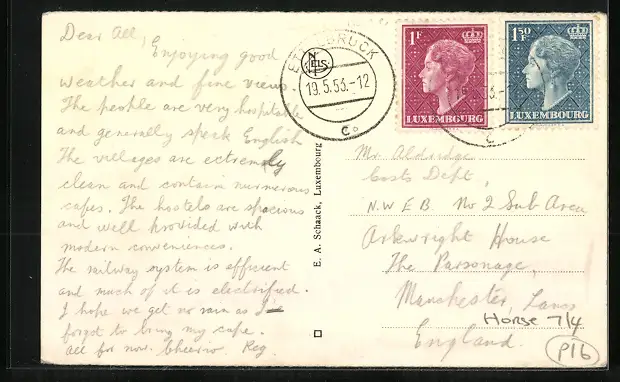 Dear All,
Enjoying good
weather and fine views.
The people are very hospitable
and generally speak English
The villages are extremely
clean and contain numerous
cafes. The hostels are spacious
and well provided with
modern conveniences.
The railway system is efficient
and much of it is electrified.
I hope we get no rain as I
forgot to bring my cape.
All for now. Cheerio. Reg.
E. A. Schaack, Luxembourg
NELS
ETTELBRUCK
19.5.53.-12
1F
LUXEMBOURG
1F50
LUXEMBOURG
Mr. Aldridge
Costs Dept,
N.W E B No 2 Sub Area
Arkwright House
The Parsonage,
Manchester, Lancs
Horse 7/4
England.
P16